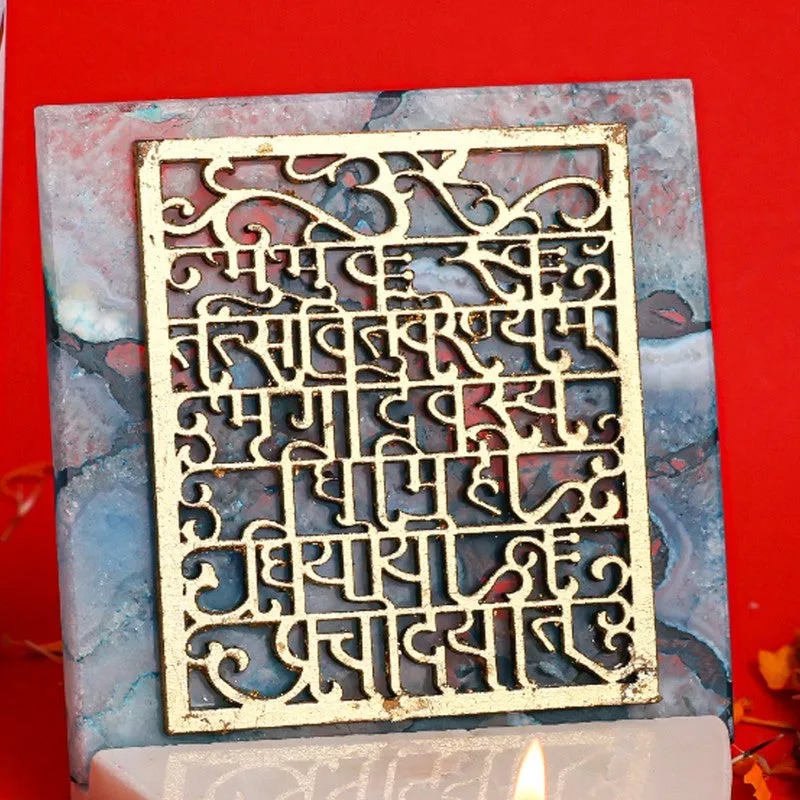 ॐ
भुर्भुवः स्वः
तत्सवितुर्वरेण्यम्
भर्गो देवस्य
धीमहि
धियो यो नः
प्रचोदयात्